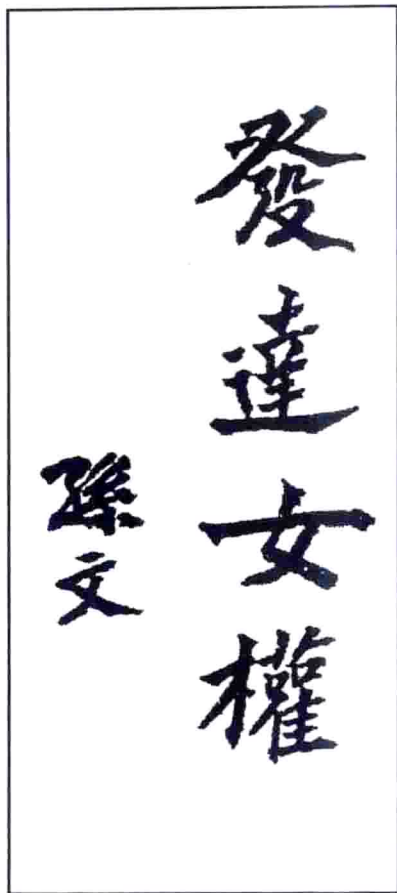 發達女權
孫文